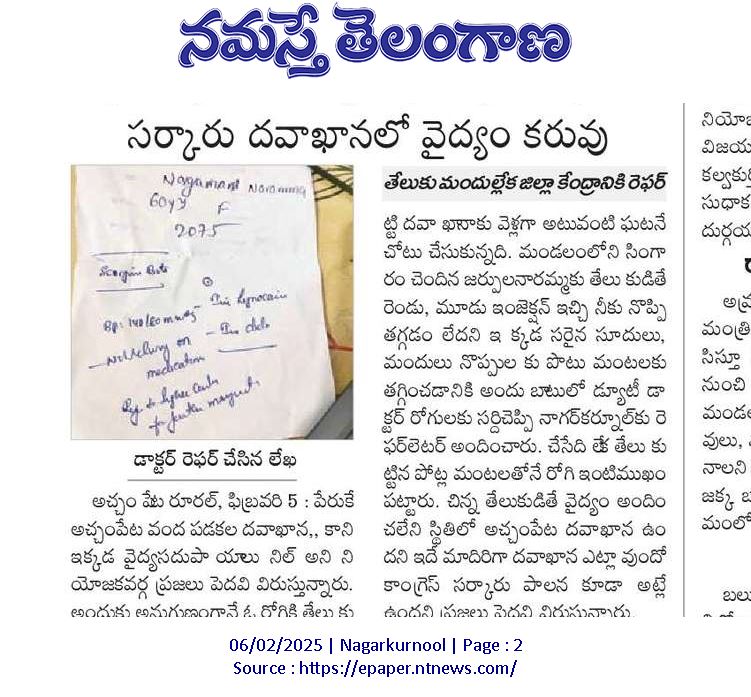 నమస్తే తెలంగాణ
సర్కారు దవాఖానలో వైద్యం కరువు
Nagamani Naramma
60y F
2075
Scorpion Bite
BP: 140/80 mmHg
- Inj
- Inj
on
medication
డాక్టర్ రెఫర్ చేసిన లేఖ
అచ్చం పేట రూరల్, ఫిబ్రవరి 5 : పేరుకే
అచ్చంపేట వంద పడకల దవాఖాన,, కాని
ఇక్కడ వైద్యసదుపా యాలు నిల్ అని ని
యోజకవర్గ ప్రజలు పెదవి విరుస్తున్నారు.
అందుకు అనుగుణంగానే ఓ రోగికి తేలు కు
తేలుకు మందుల్లేక జిల్లా కేంద్రానికి రెఫర్
ట్టి దవా ఖానాకు వెళ్లగా అటువంటి ఘటనే
చోటు చేసుకున్నది. మండలంలోని సింగా
రం చెందిన జర్పులనారమ్మకు తేలు కుడితే
రెండు, మూడు ఇంజెక్షన్ ఇచ్చి నీకు నొప్పి
తగ్గడం లేదని ఇ క్కడ సరైన సూదులు,
మందులు నొప్పుల కు పొటు మంటలకు
తగ్గించడానికి అందు బాటులో డ్యూటీ డా
క్టర్ రోగులకు సర్దిచెప్పి నాగర్‌కర్నూల్‌కు రె
ఫర్‌లెటర్ అందించారు. చేసేది లేక తేలు కు
ట్టిన పోట్ల మంటలతోనే రోగి ఇంటిముఖం
పట్టారు. చిన్న తేలుకుడితే వైద్యం అందిం
చలేని స్థితిలో అచ్చంపేట దవాఖాన ఉం
దని ఇదే మాదిరిగా దవాఖాన ఎట్లా వుందో
కాంగ్రెస్ సర్కారు పాలన కూడా అట్లే
ఉందని ప్రజలు పెదవి విరుస్తున్నారు.
నియోజ
విజయ
కల్వకుర్
సుధాక
దుర్గయ
అవ్ర
మంత్రి
సిస్తూ
నుంచి
మండల
వులు,
నాలని
జక్క బ
మంలో
బలు
06/02/2025 | Nagarkurnool | Page : 2
Source : https://epaper.ntnews.com/